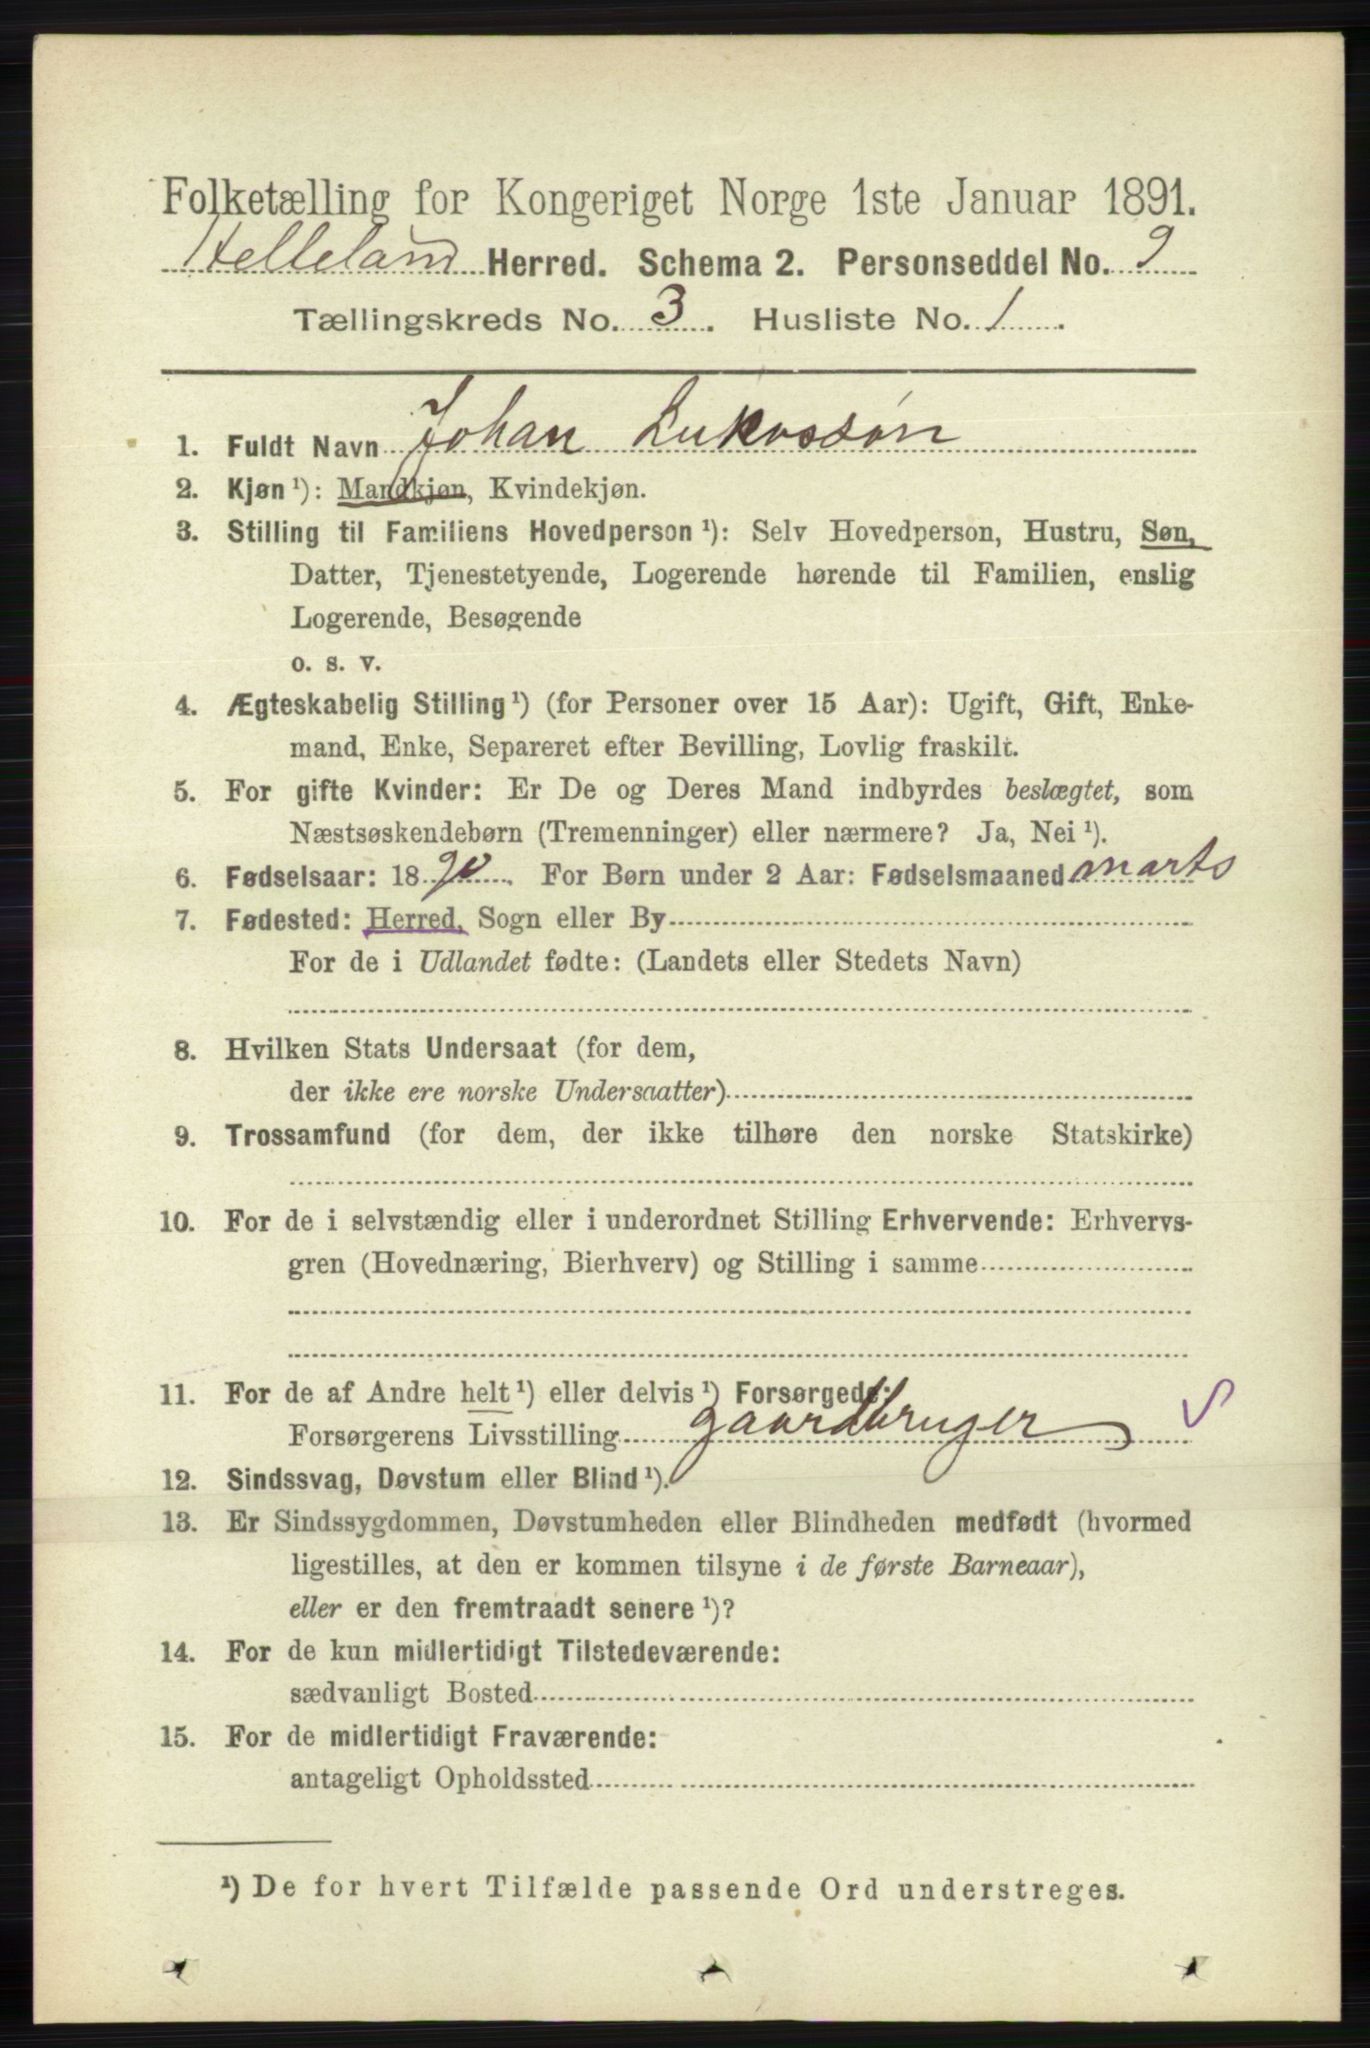 Folketælling for Kongeriget Norge 1ste Januar 1891.
Helleland Herred. Schema 2. Personseddel No. 9
Tællingskreds No. 3. Husliste No. 1.
1. Fuldt Navn Johan Lukassøn
2. Kjøn ¹): Mandkjøn, Kvindekjøn.
3. Stilling til Familiens Hovedperson ¹): Selv Hovedperson, Hustru, Søn,
Datter, Tjenestetyende, Logerende hørende til Familien, enslig
Logerende, Besøgende
o. s. v.
4. Ægteskabelig Stilling ¹) (for Personer over 15 Aar): Ugift, Gift, Enke-
mand, Enke, Separeret efter Bevilling, Lovlig fraskilt.
5. For gifte Kvinder: Er De og Deres Mand indbyrdes beslægtet, som
Næstsøskendebørn (Tremenninger) eller nærmere? Ja, Nei ¹).
6. Fødselsaar: 1890. For Børn under 2 Aar: Fødselsmaaned marts
7. Fødested: Herred, Sogn eller By
For de i Udlandet fødte: (Landets eller Stedets Navn)
8. Hvilken Stats Undersaat (for dem,
der ikke ere norske Undersaatter)
9. Trossamfund (for dem, der ikke tilhøre den norske Statskirke)
10. For de i selvstændig eller i underordnet Stilling Erhvervende: Erhvervs-
gren (Hovednæring, Bierhverv) og Stilling i samme
11. For de af Andre helt ¹) eller delvis ¹) Forsørgede:
Forsørgerens Livsstilling gaardbruger S
12. Sindssvag, Døvstum eller Blind ¹).
13. Er Sindssygdommen, Døvstumheden eller Blindheden medfødt (hvormed
ligestilles, at den er kommen tilsyne i de første Barneaar),
eller er den fremtraadt senere ¹)?
14. For de kun midlertidigt Tilstedeværende:
sædvanligt Bosted
15. For de midlertidigt Fraværende:
antageligt Opholdssted
¹) De for hvert Tilfælde passende Ord understreges.